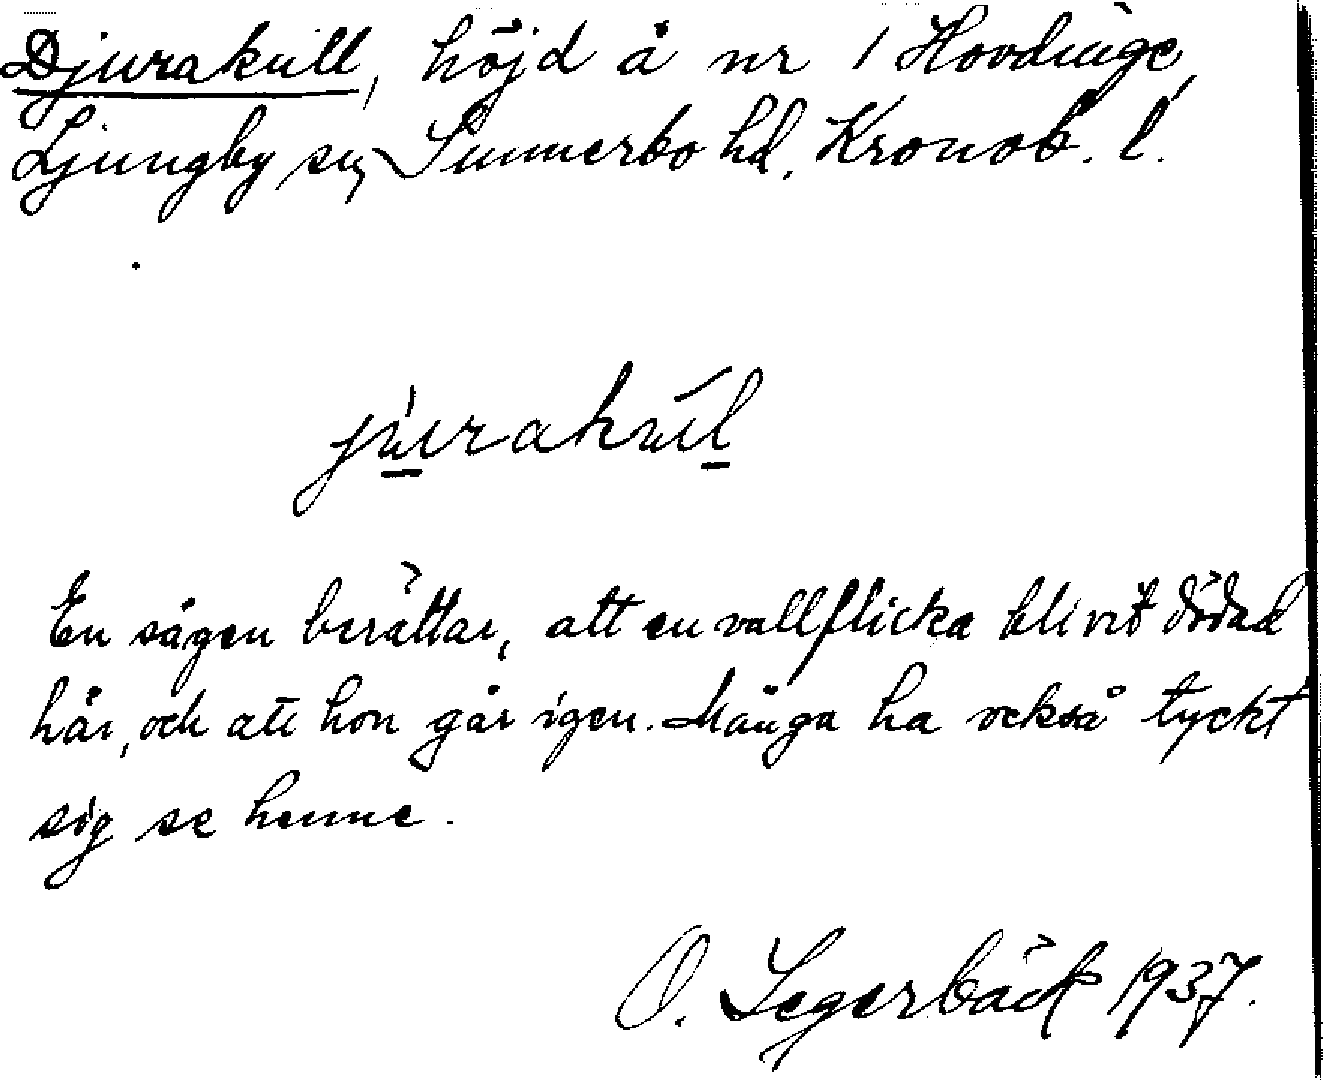 Djurakull, höjd å nr 1 Hovdinge,
Ljungby sn, Sunnerbo hd, Kronob. l.
jurakul
En sägen berättar, att en vallflicka blivit dödad
här, och att hon går igen. Många ha också tyckt
sig se henne.
O. Segerbäck 1937.